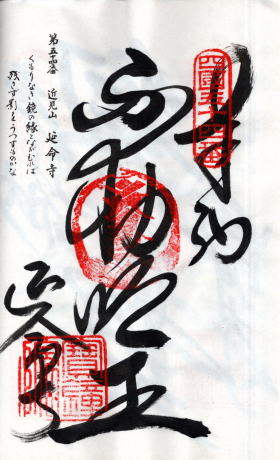 四國五十四番
奉納
不動明王
延命寺
第五十四番　近見山　延命寺
くもりなき鏡の縁とながむれば
残さず影をうつすものかな